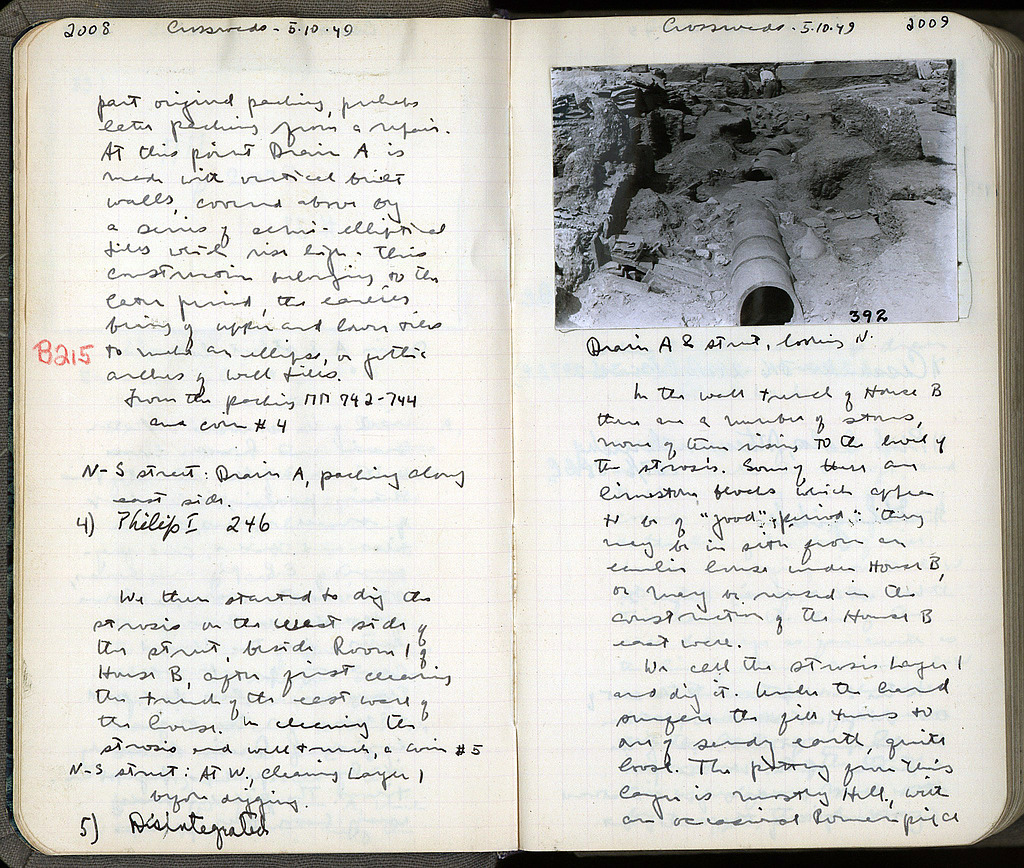 2008 Crossroads - 5.10.49
part original packing, perhaps
later packing from a repair.
At this point Drain A is
made with vertical built
walls, covered above by
a series of semi-elliptical
tiles with rise high. This
construction belonging to the
later period, the earlier
being of upper and lower tiles
B215
to make an ellipse, or gothic
arches of well tiles.
From the packing ΠΠ 742-744
and coin #4
N-S street: Drain A, packing along
east side.
4) Philip I 246
We then started to dig the
strosis on the west side of
the street, beside Room 1 of
House B, after first clearing
the trench of the east wall of
the house. In cleaning the
strosis and wall trench, a coin #5
N-S street: At W, cleaning Layer 1
before digging.
5) Disintegrated
Crossroads - 5.10.49 2009
392
Drain A & street, looking N.
In the wall trench of House B
there are a number of stones,
none of them rising to the level of
the strosis. Some of these are
limestone blocks which appear
to be of "good" period: they
may be in situ from an
earlier house under House B,
or may be reused in the
construction of the House B
east wall.
We call the strosis Layer 1
and dig it. Under the hard
surface the fill turns to
one of sandy earth, quite
loose. The pottery from this
layer is mostly Hell, with
an occasional Roman piece